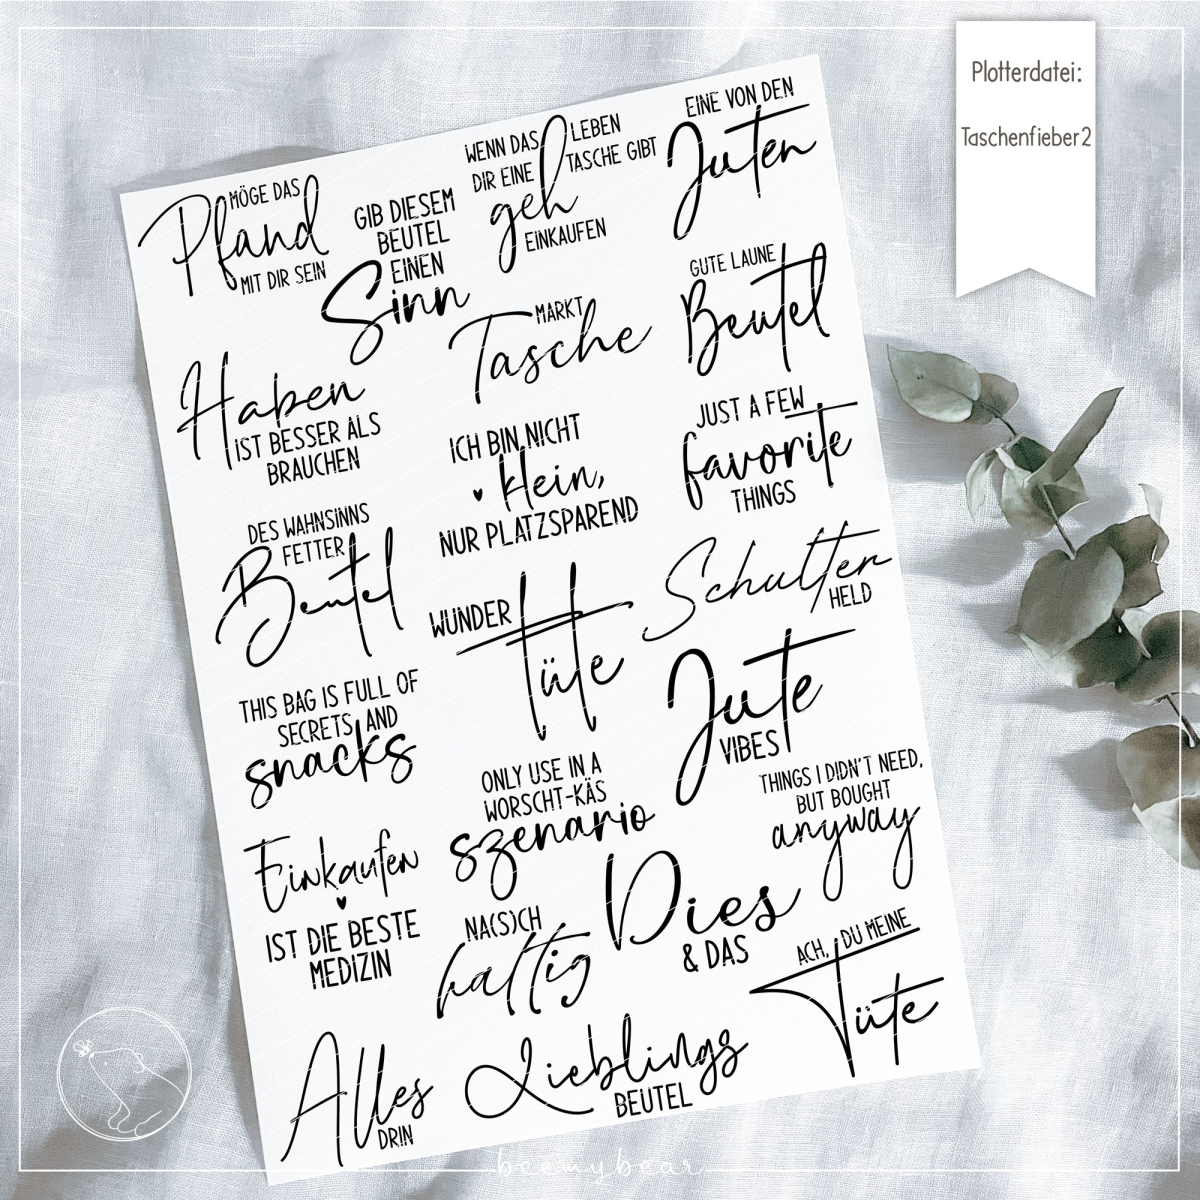 Plotterdatei:
Taschenfieber2
MÖGE DAS
Pfand
MIT DIR SEIN
GIB DIESEM
BEUTEL
EINEN
Sinn
WENN DAS LEBEN
DIR EINE TASCHE GIBT
geh
EINKAUFEN
EINE VON DEN
Juten
GUTE LAUNE
Beutel
MARKT
Tasche
Haben
IST BESSER ALS
BRAUCHEN
ICH BIN NICHT
klein,
NUR PLATZSPAREND
JUST A FEW
favorite
THINGS
DES WAHNSINNS
FETTER
Beutel
WUNDER
tüte
Schulter
HELD
THIS BAG IS FULL OF
SECRETS AND
snacks
Jute
VIBES
ONLY USE IN A
WORSCHT-KÄS
szenario
THINGS I DIDN'T NEED,
BUT BOUGHT
anyway
Einkaufen
IST DIE BESTE
MEDIZIN
NA(S)CH
haltig
Dies
& DAS
ACH, DU MEINE
Tüte
Alles
DRIN
Lieblings
BEUTEL
beemybear